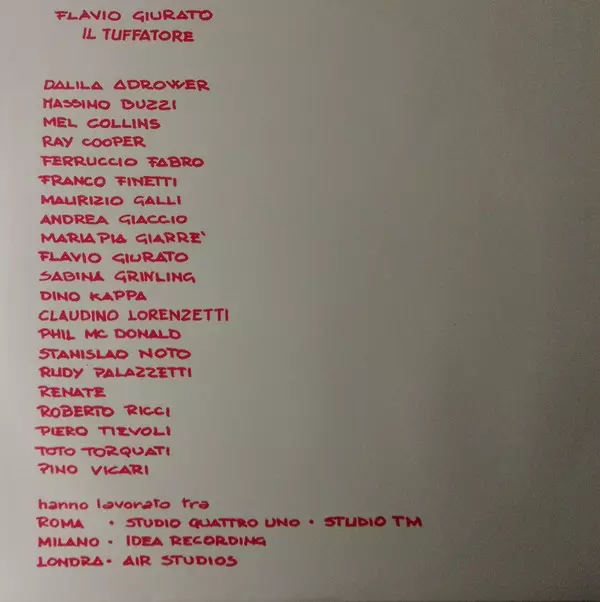 FLAVIO GIURATO
IL TUFFATORE
DALILA ADROWER
MASSIMO BUZZI
MEL COLLINS
RAY COOPER
FERRUCCIO FABRO
FRANCO FINETTI
MAURIZIO GALLI
ANDREA GIACCIO
MARIA PIA GIARRE'
FLAVIO GIURATO
SABINA GRINLING
DINO KAPPA
CLAUDINO LORENZETTI
PHIL MC DONALD
STANISLAO NOTO
RUDY PALAZZETTI
RENATE
ROBERTO RICCI
PIERO TIEVOLI
TOTO TORQUATI
PINO VICARI
hanno lavorato tra
ROMA • STUDIO QUATTRO UNO • STUDIO TM
MILANO • IDEA RECORDING
LONDRA • AIR STUDIOS